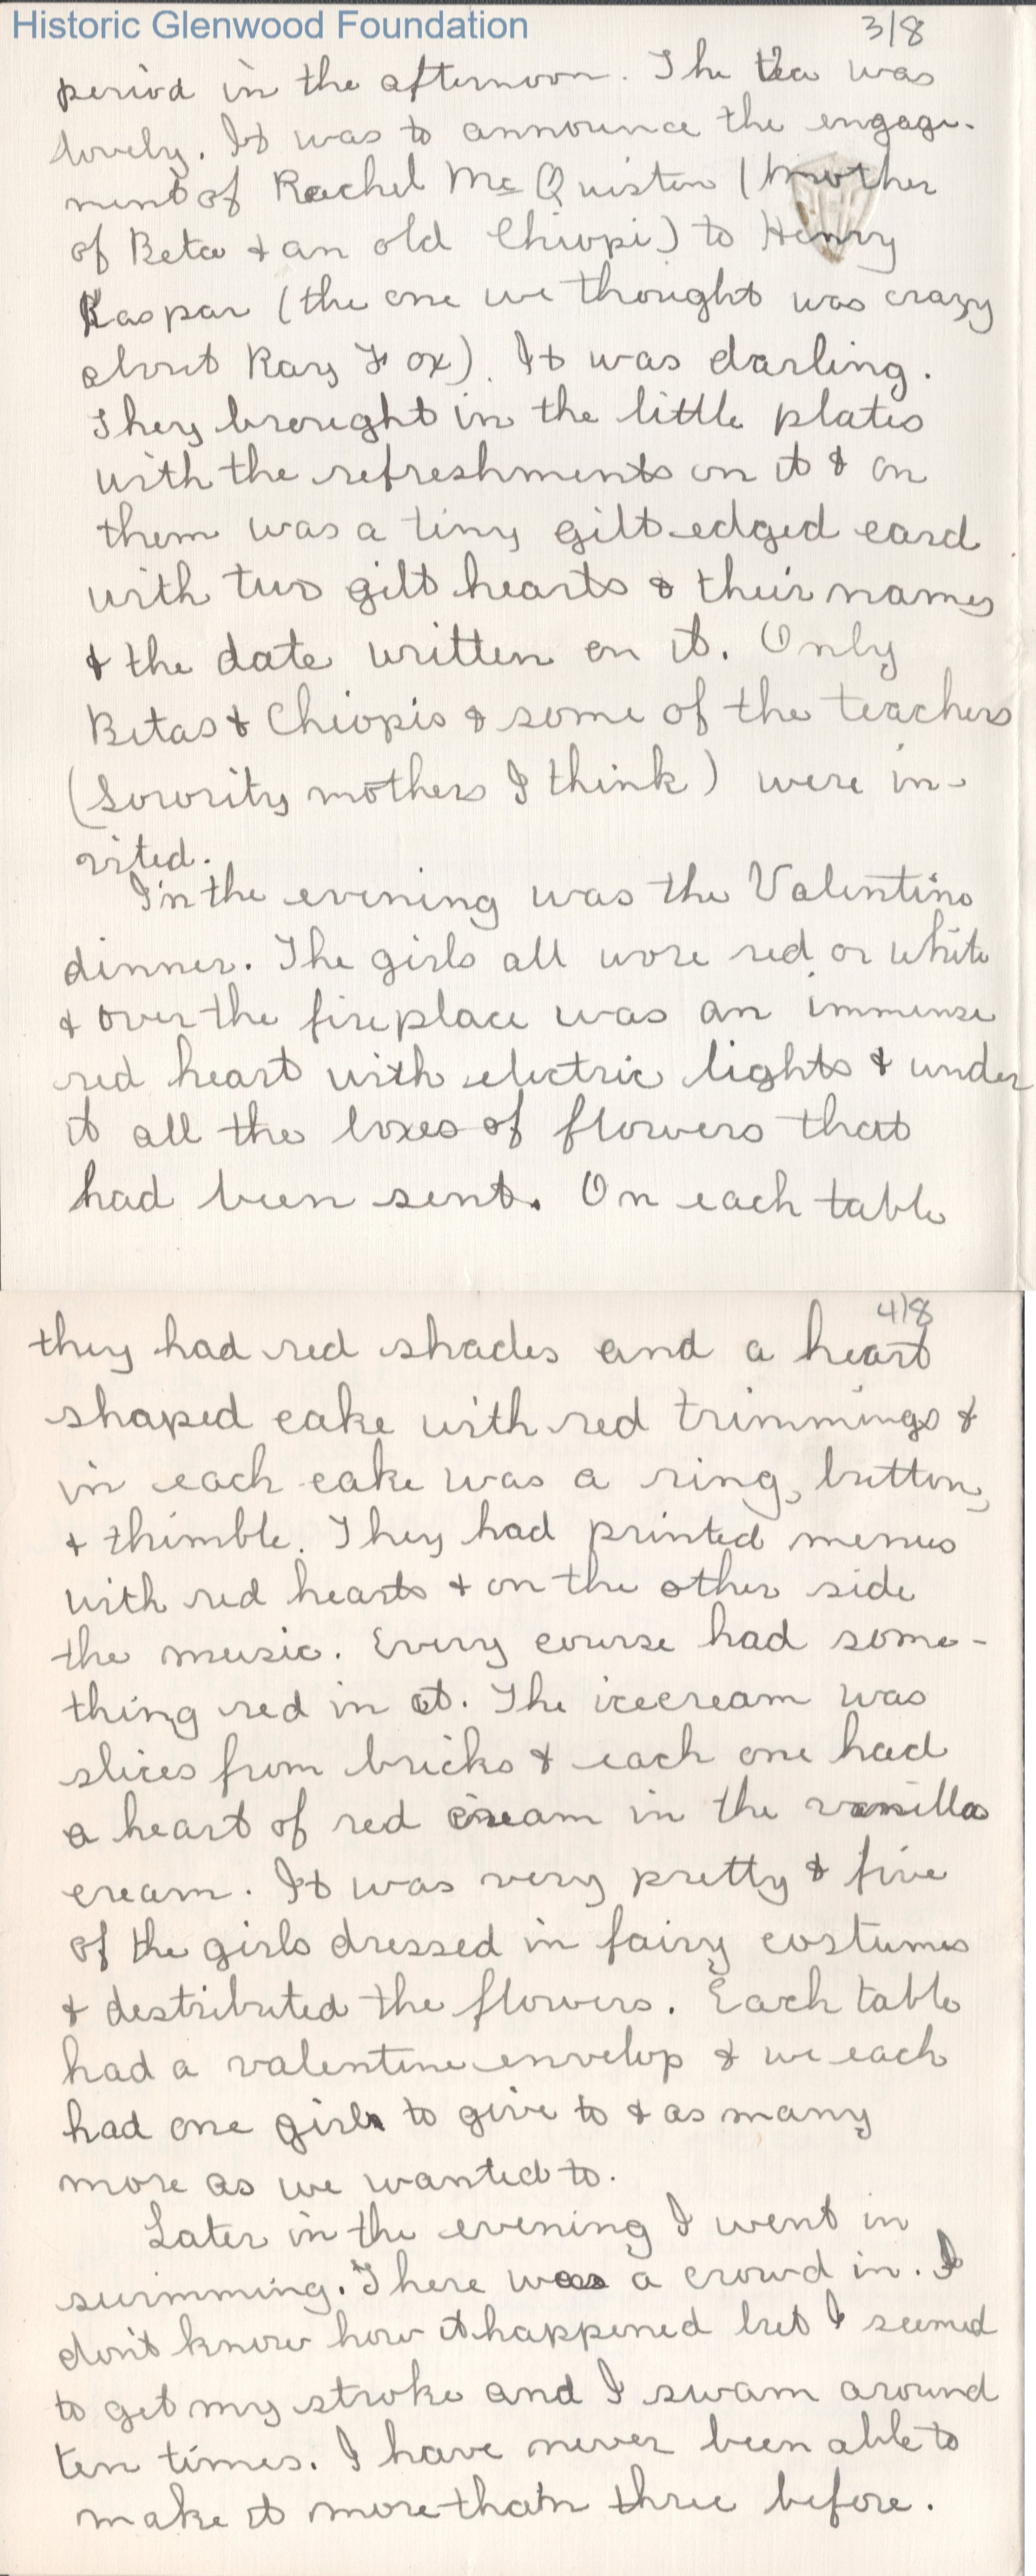 Historic Glenwood Foundation
3/8
period in the afternoon. The tea was
lovely. It was to announce the engage-
ment of Rachel McQuiston (mother
of Beta & an old Chiopi) to Henry
Kaspar (the one we thought was crazy
about Kay Fox). It was darling.
They brought in the little plates
with the refreshments on it & on
them was a tiny gilt edged card
with two gilt hearts & their names
& the date written on it. Only
Betas & Chiopis & some of the teachers
(Sorority mothers I think) were in-
vited.
In the evening was the Valentine
dinner. The girls all wore red or white
& over the fireplace was an immense
red heart with electric lights & under
it all the boxes of flowers that
had been sent. On each table
4/8
they had red shades and a heart
shaped cake with red trimmings &
in each cake was a ring, button,
& thimble. They had printed menus
with red hearts & on the other side
the music. Every course had some-
thing red in it. The icecream was
slices from bricks & each one had
a heart of red cream in the vanilla
cream. It was very pretty & five
of the girls dressed in fairy costumes
& destributed the flowers. Each table
had a valentine envelop & we each
had one girl to give to & as many
more as we wanted to.
Later in the evening I went in
swimming. There was a crowd in. I
don't know how it happened but I seemed
to get my stroke and I swam around
ten times. I have never been able to
make it more than three before.